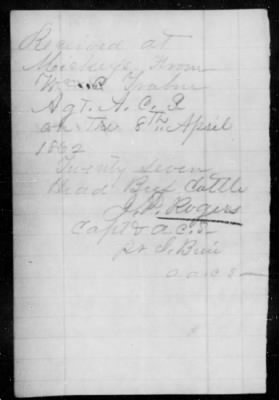 Received at
Mickeys from
Wm Trabue
Agt. A. C. S
on The 8th April
1862
Twenty seven
Head Beef Cattle
J. D. Rogers
Capt & A.C.S
pr
a a c s